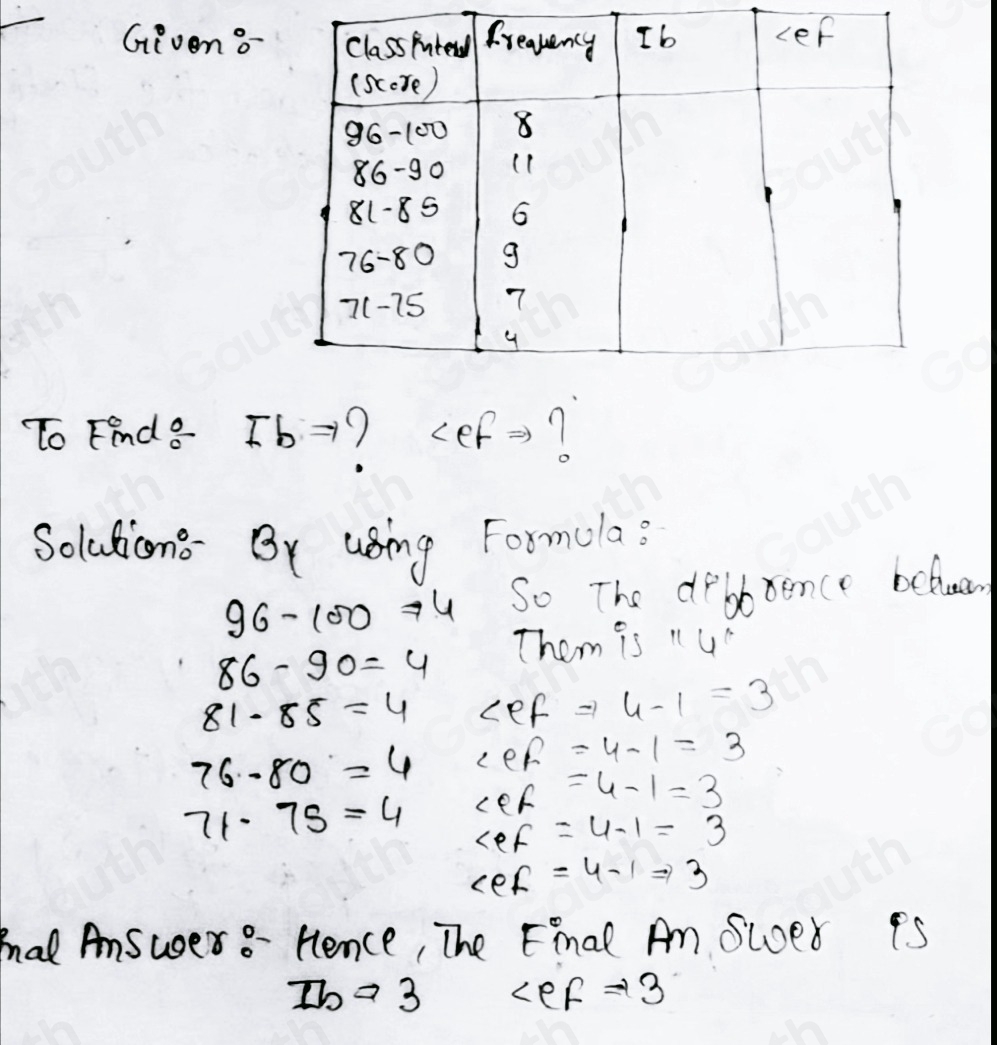 Given :-
Class Interval (Score) | frequency | Ib | <ef
96-100 | 8
86-90 | 11
81-85 | 6
76-80 | 9
71-75 | 7
4
To Find :- Ib ⇒ ? <ef ⇒ ?
Solution :- By using Formula :-
96-100 ⇒ 4 So The diffrence between
86-90 = 4 Them is "4"
81-85 = 4 <ef ⇒ 4-1 = 3
76-80 = 4 <ef = 4-1 = 3
71-75 = 4 <ef = 4-1 = 3
<ef = 4-1 = 3
<ef = 4-1 ⇒ 3
nal Answer :- Hence, The Final Answer is
Ib ⇒ 3 <ef ⇒ 3
Gauth